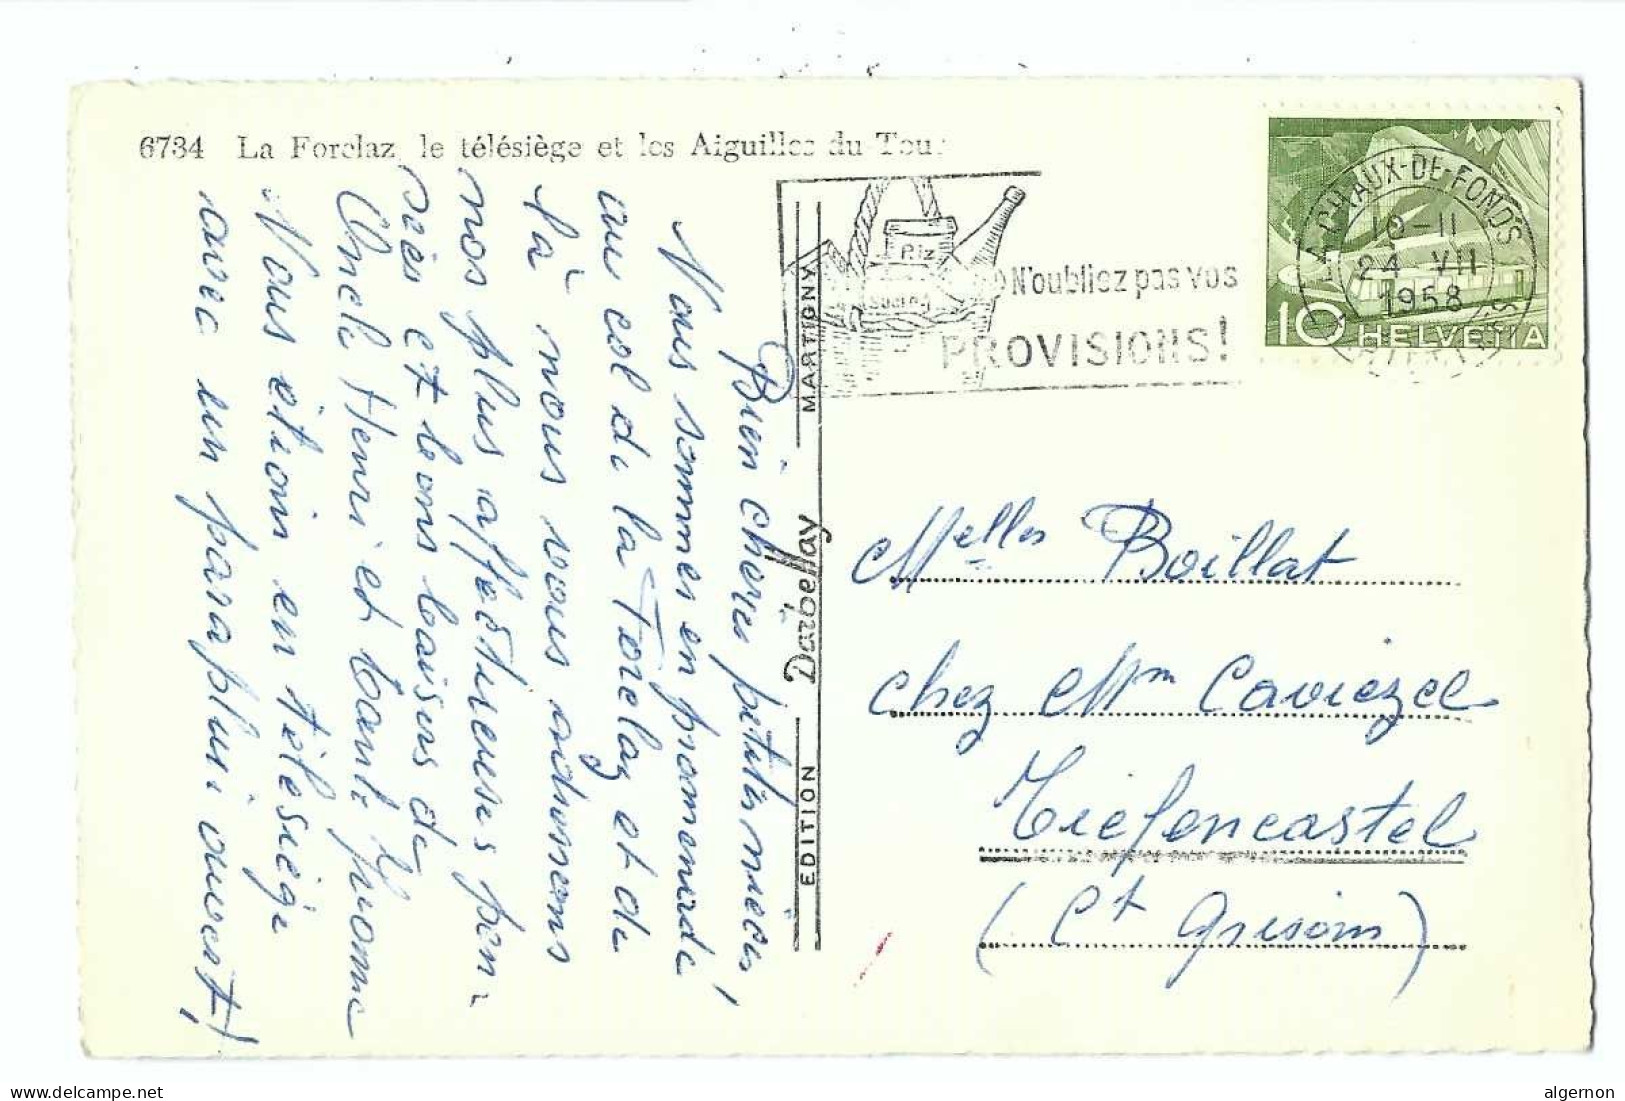 6734 La Forclaz le télésiège et les Aiguilles du Tour
Bien chères petites nièces!
Nous sommes en promenade
au col de la Forclaz et de
là nous vous adressons
nos plus affectueuses pen-
sées et bons baisers de
Oncle Henri et tante
Nous étions en télésiège
avec un parapluie ouvert!
EDITION Darbellay MARTIGNY
Riz
N'oubliez pas vos
PROVISIONS!
LA CHAUX-DE-FONDS
24 VII
1958
10 HELVETIA
Melles Boillat
chez Mme Caviezel
Tiefencastel
(Ct Grisons)
www.delcampe.net
algernon